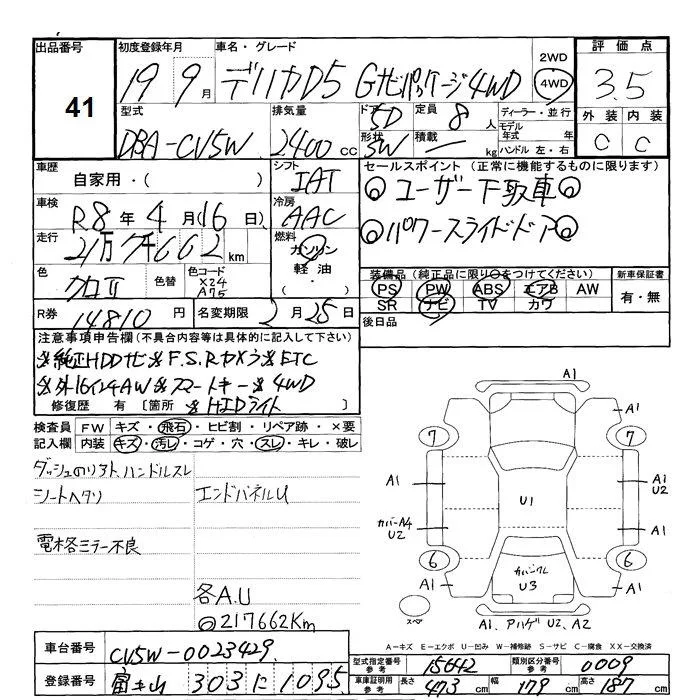 出品番号 41
初度登録年月 19 9月
車名・グレード デリカD5 Gナビパッケージ4WD
2WD
4WD
評価点 3.5
外装 内装
C C
型式 DBA-CV5W
排気量 2400cc
ドア 5D
形状 5W
定員 8人
積載 ー kg
ディーラー・並行
モデル年式 年
ハンドル 左・右
車歴 自家用・( )
シフト IAT
セールスポイント(正常に機能するものに限ります)
◎ユーザー下取車◎
◎パワースライドドア◎
車検 R8年4月(16日)
冷房 AAC
走行 21万7千662km
燃料 ガソリン
軽油・
・( )
色 クロII
色替
色コード X24 A75
装備品(純正品に限り○をつけてください)
PS PW ABS エアB AW
SR ナビ TV カワ
新車保証書
有・無
R券 14810円
名変期限 2月25日
後日品
注意事項申告欄(不具合内容等は具体的に記入して下さい)
※純正HDDナビ※F.S.Rカメラ※ETC
※外16インチAW※スマートキー※4WD
修復歴 有 [箇所 ※HIDライト
検査員記入欄
FW キズ・飛石・ヒビ割・リペア跡・×要
内装 キズ・汚レ・コゲ・穴・スレ・キレ・破レ
ダッシュのリフト ハンドルスレ
シートヘタリ
エンドパネルU
電格ミラー不良
各A.U
◎217662Km
A1
A1
7
7
A1
A1 U2
U1
カバーA4 U2
A1
6
6
カバンクレ
U3
A1
A1
スペア
A1、アハゲ U2、A2
A-キズ E-エクボ U-凹み W-補修跡 S-サビ C-腐食 XX-交換済
車台番号 CV5W-0023429
型式指定番号 参考 15642
類別区分番号 参考 0009
登録番号 富士山 303 に 1095
車庫証明用 参考
長さ 473cm
幅 179cm
高さ 187cm